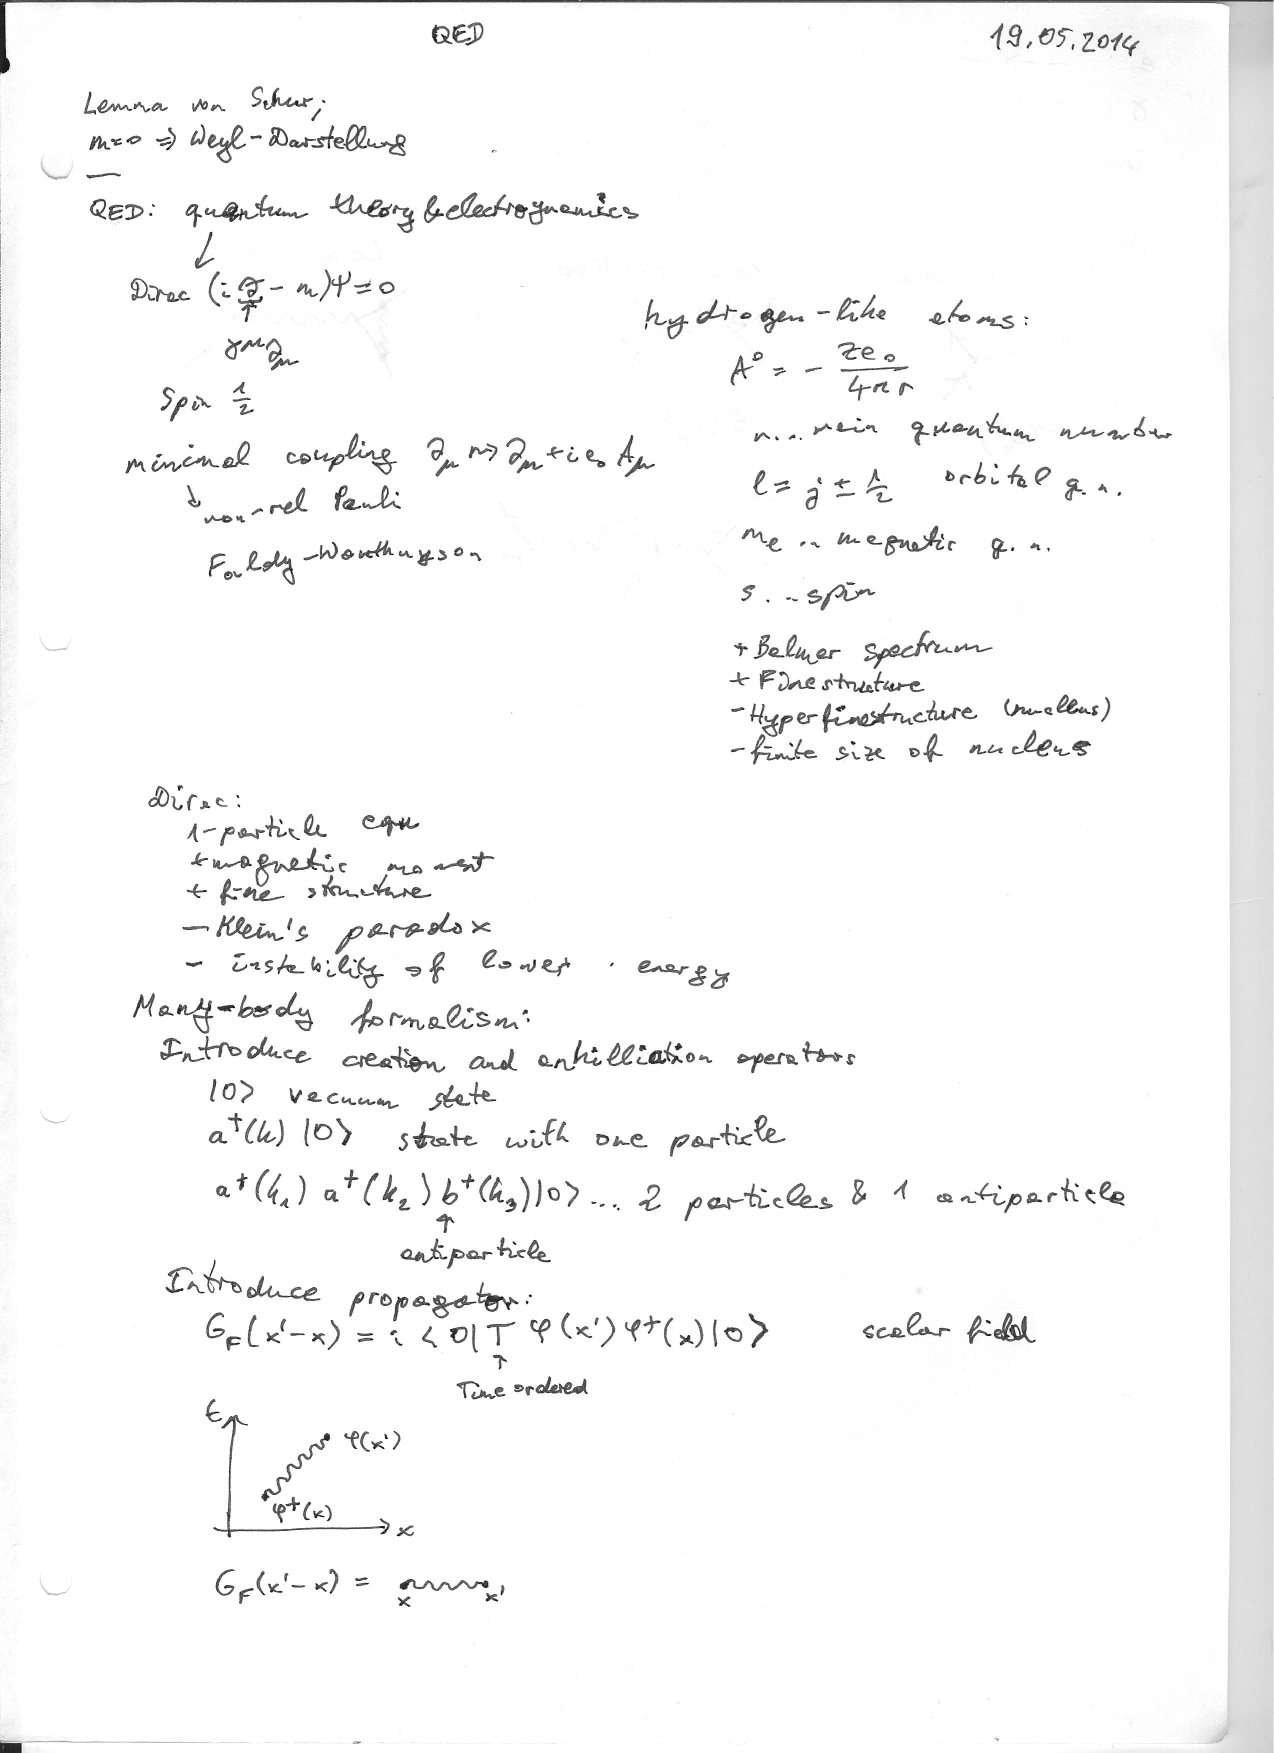 QED
19.05.2014
Lemma von Schur;
m=0 ⇒ Weyl-Darstellung
QED: quantum theory & electrodynamics
↓
Dirac (i∂̸ - m)Ψ=0
↑
γ^μ ∂_μ
Spin 1/2
minimal coupling ∂_μ ⇝ ∂_μ + i e₀ A_μ
↳ non-rel Pauli
Foldy-Wouthuyson
hydrogen-like atoms:
A⁰ = - Ze₀/4πr
n... main quantum number
l = j ± 1/2 orbital q.n.
m_e .. magnetic q.n.
s...spin
+ Balmer spectrum
+ Finestructure
- Hyperfinestructure (nucleus)
- finite size of nucleus
Dirac:
1-particle equ
+ magnetic moment
+ fine structure
- Klein's paradox
- instability of lower energy
Many-body formalism:
Introduce creation and anhilliation operators
|0> vacuum state
a†(k) |0> state with one particle
a†(k₁) a†(k₂) b†(k₃)|0> ... 2 particles & 1 antiparticle
↑
antiparticle
Introduce propagator:
G_F(x'-x) = i <0|T φ(x') φ†(x)|0> scalar field
↑
Time ordered
t
φ(x')
φ†(x)
x
G_F(x'-x) =
x x'